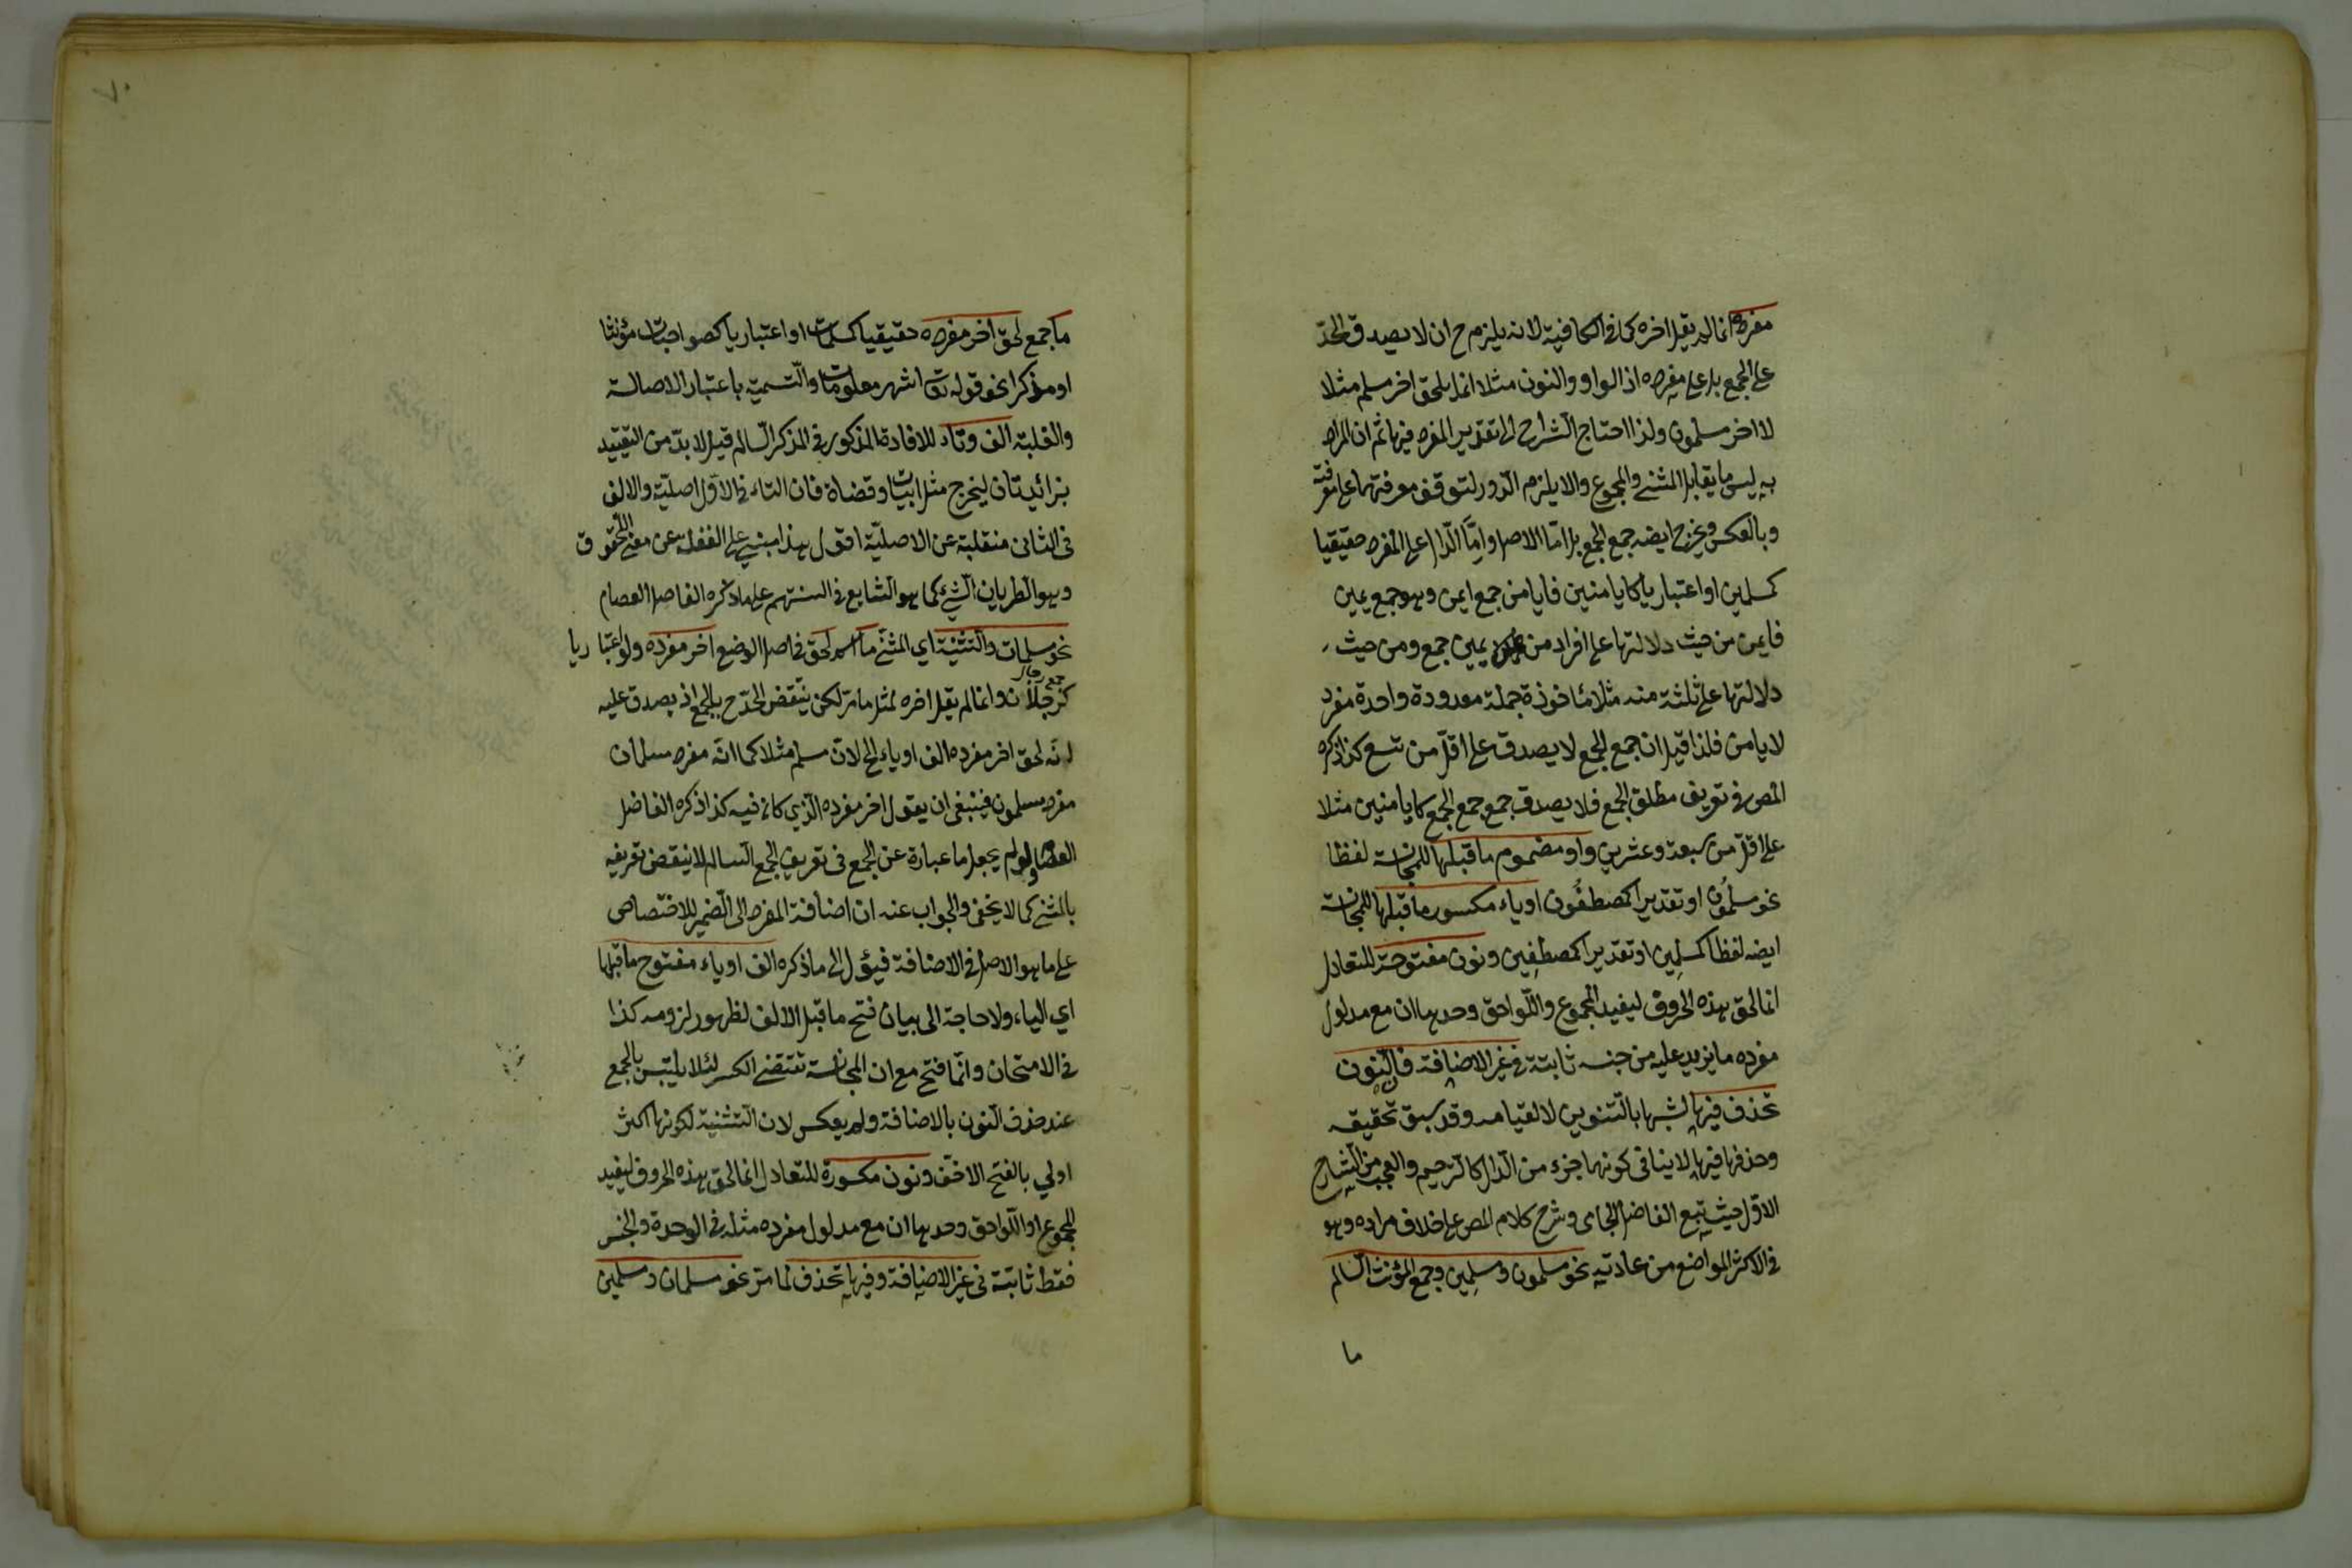 مفرده انما لم يقل اخره كما في الكافية لانه يلزم ح ان لا يصدق الحدّ
على الجمع بل على مفرده اذ الواو والنون مثلا انما يلحق اخر مسلم مثلا
لا اخر مسلمون ولذا احتاج الشراح الى تقدير المفرد فيها ثم ان المراد
به ليس ما يقابل المثنى والمجموع والا يلزم الدور لتوقف معرفتهما على معرفته
وبالعكس ويخرج ايضه جمع الجمع بل امّا الاصل وامّا الدال على المفرد حقيقيا
كمسلمين او اعتباريا كايامنين فايامن جمع ايمن وهو جمع يمين
فايمن من حيث دلالتها على افراد من يمين جمع ومن حيث
دلالتها على ثلثة منه مثلا مأخوذة جملة معدودة واحدة مفرد
لايامن فلذا قيل ان جمع الجمع لا يصدق على اقلّ من تسع كذا ذكره
المص في تعريف مطلق الجمع فلا يصدق جمع جمع الجمع كايامنين مثلا
على اقل من سبعة وعشرين واو مضموم ما قبلها للمجانسة لفظا
نحو مسلمُون او تقديرا كمصطفُون او ياء مكسور ما قبلها للمجانسة
ايضه لفظا كمسلِمين او تقديرا كمصطفِين ونون مفتوحة للتعادل
انما لحق هذه الحروف ليفيد المجموع واللّواحق وحدها ان مع مدلول
مفرده ما يزيد عليه من جنسه ثابتة في غير الاضافة فالنون
تحذف فيها لشبهها بالتنوين لا لقيامه وقد سبق تحقيقه
وحذفها فيها لا ينافي كونها جزء من الدال كالترخيم والعجب من الشارح
الاوّل حيث تبع الفاضل الجامى وشرح كلام المص على خلاف مراده وهو
في الاكثر المواضع من عادته نحو مسلمون ومسلِمين وجمع المؤنث السالم
ما
٧٠
ما جمع لحق اخر مفرده حقيقيا كمسلمات او اعتباريا كصواحبات مؤنثا
او مذكرا نحو قوله تعا اشهر معلومات والتسمية باعتبار الاصالة
والغلبة الف وتاء للافادة المذكور في المذكر السالم قيل لا بدّ من التقييد
بزائدتان ليخرج مثل ابيات وقضاة فان التاء في الاوّل اصليّة والالف
فى الثانى منقلبة عن الاصليّة اقول هذا مبنى على الغفلة عن معنى اللحوق
وهو الطريان الشيء كما هو الشايع في السنتهم على ما ذكره الفاضل العصام
نحو مسلمات والتثنية اي المثنّى ما اسم لحق في اصل الوضع اخر مفرده ولو اعتباريا
كرجالان جمع رجال وانما لم يقل اخره لمثل ما مرّ لكن ينتقض الحدّ ح بالجمع اذ يصدق عليه
انه لحق اخر مفرده الف او ياء الخ لان مسلم مثلا كما انه مفرد مسلمان
مفرد مسلمون فينبغى ان يقول اخر مفرده الذي كان فيه كذا ذكره الفاضل
العصام ولو لم يجعل ما عبارة عن الجمع فى تعريف الجمع السالم لانتقض تعريفه
بالمثنى كما لا يخفى والجواب عنه ان اضافة المفرد الى الضمير للاختصاص
على ما هو الاصل في الاضافة فيؤل الى ما ذكره الف او ياء مفتوح ما قبلها
اي الياء ولا حاجة الى بيان فتح ما قبل الالف لظهور لزومه كذا
في الامتحان وانّما فتح مع ان المجانسة تقتضى الكسر لئلا يلتبس بالجمع
عند حذف النون بالاضافة ولم يعكس لان التثنية لكونها اكثر
اولى بالفتح الاخفّ ونون مكسورة للتعادل انما لحق هذه الحروف ليفيد
المجموع او اللّواحق وحدها ان مع مدلول مفرده مثله في الوحدة والجنس
فقط ثابتة فى غير الاضافة وفيها تحذف لما مرّ نحو مسلمان ومسلمَين